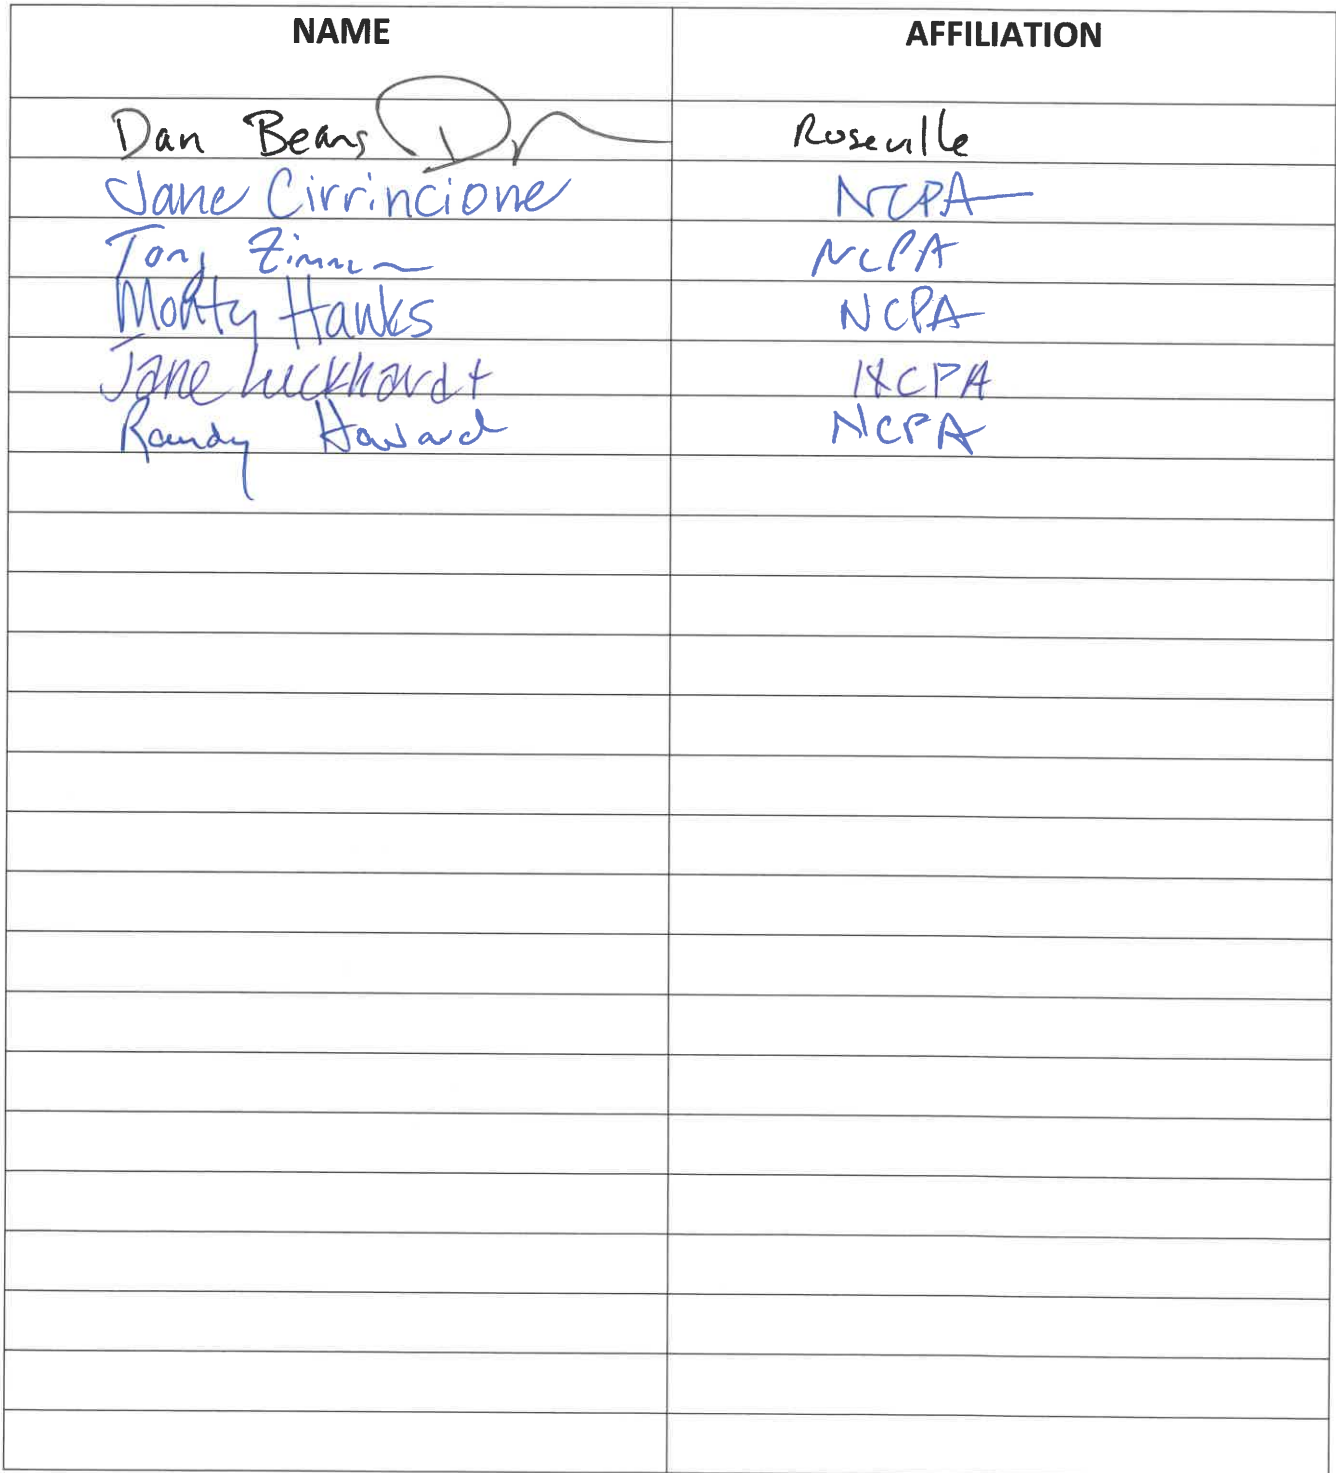 NAME AFFILIATION
Dan Beans Roseville
Jane Cirrincione NCPA
Tony NCPA
Monty Hanks NCPA
Jane Luckhardt NCPA
Randy Howard NCPA